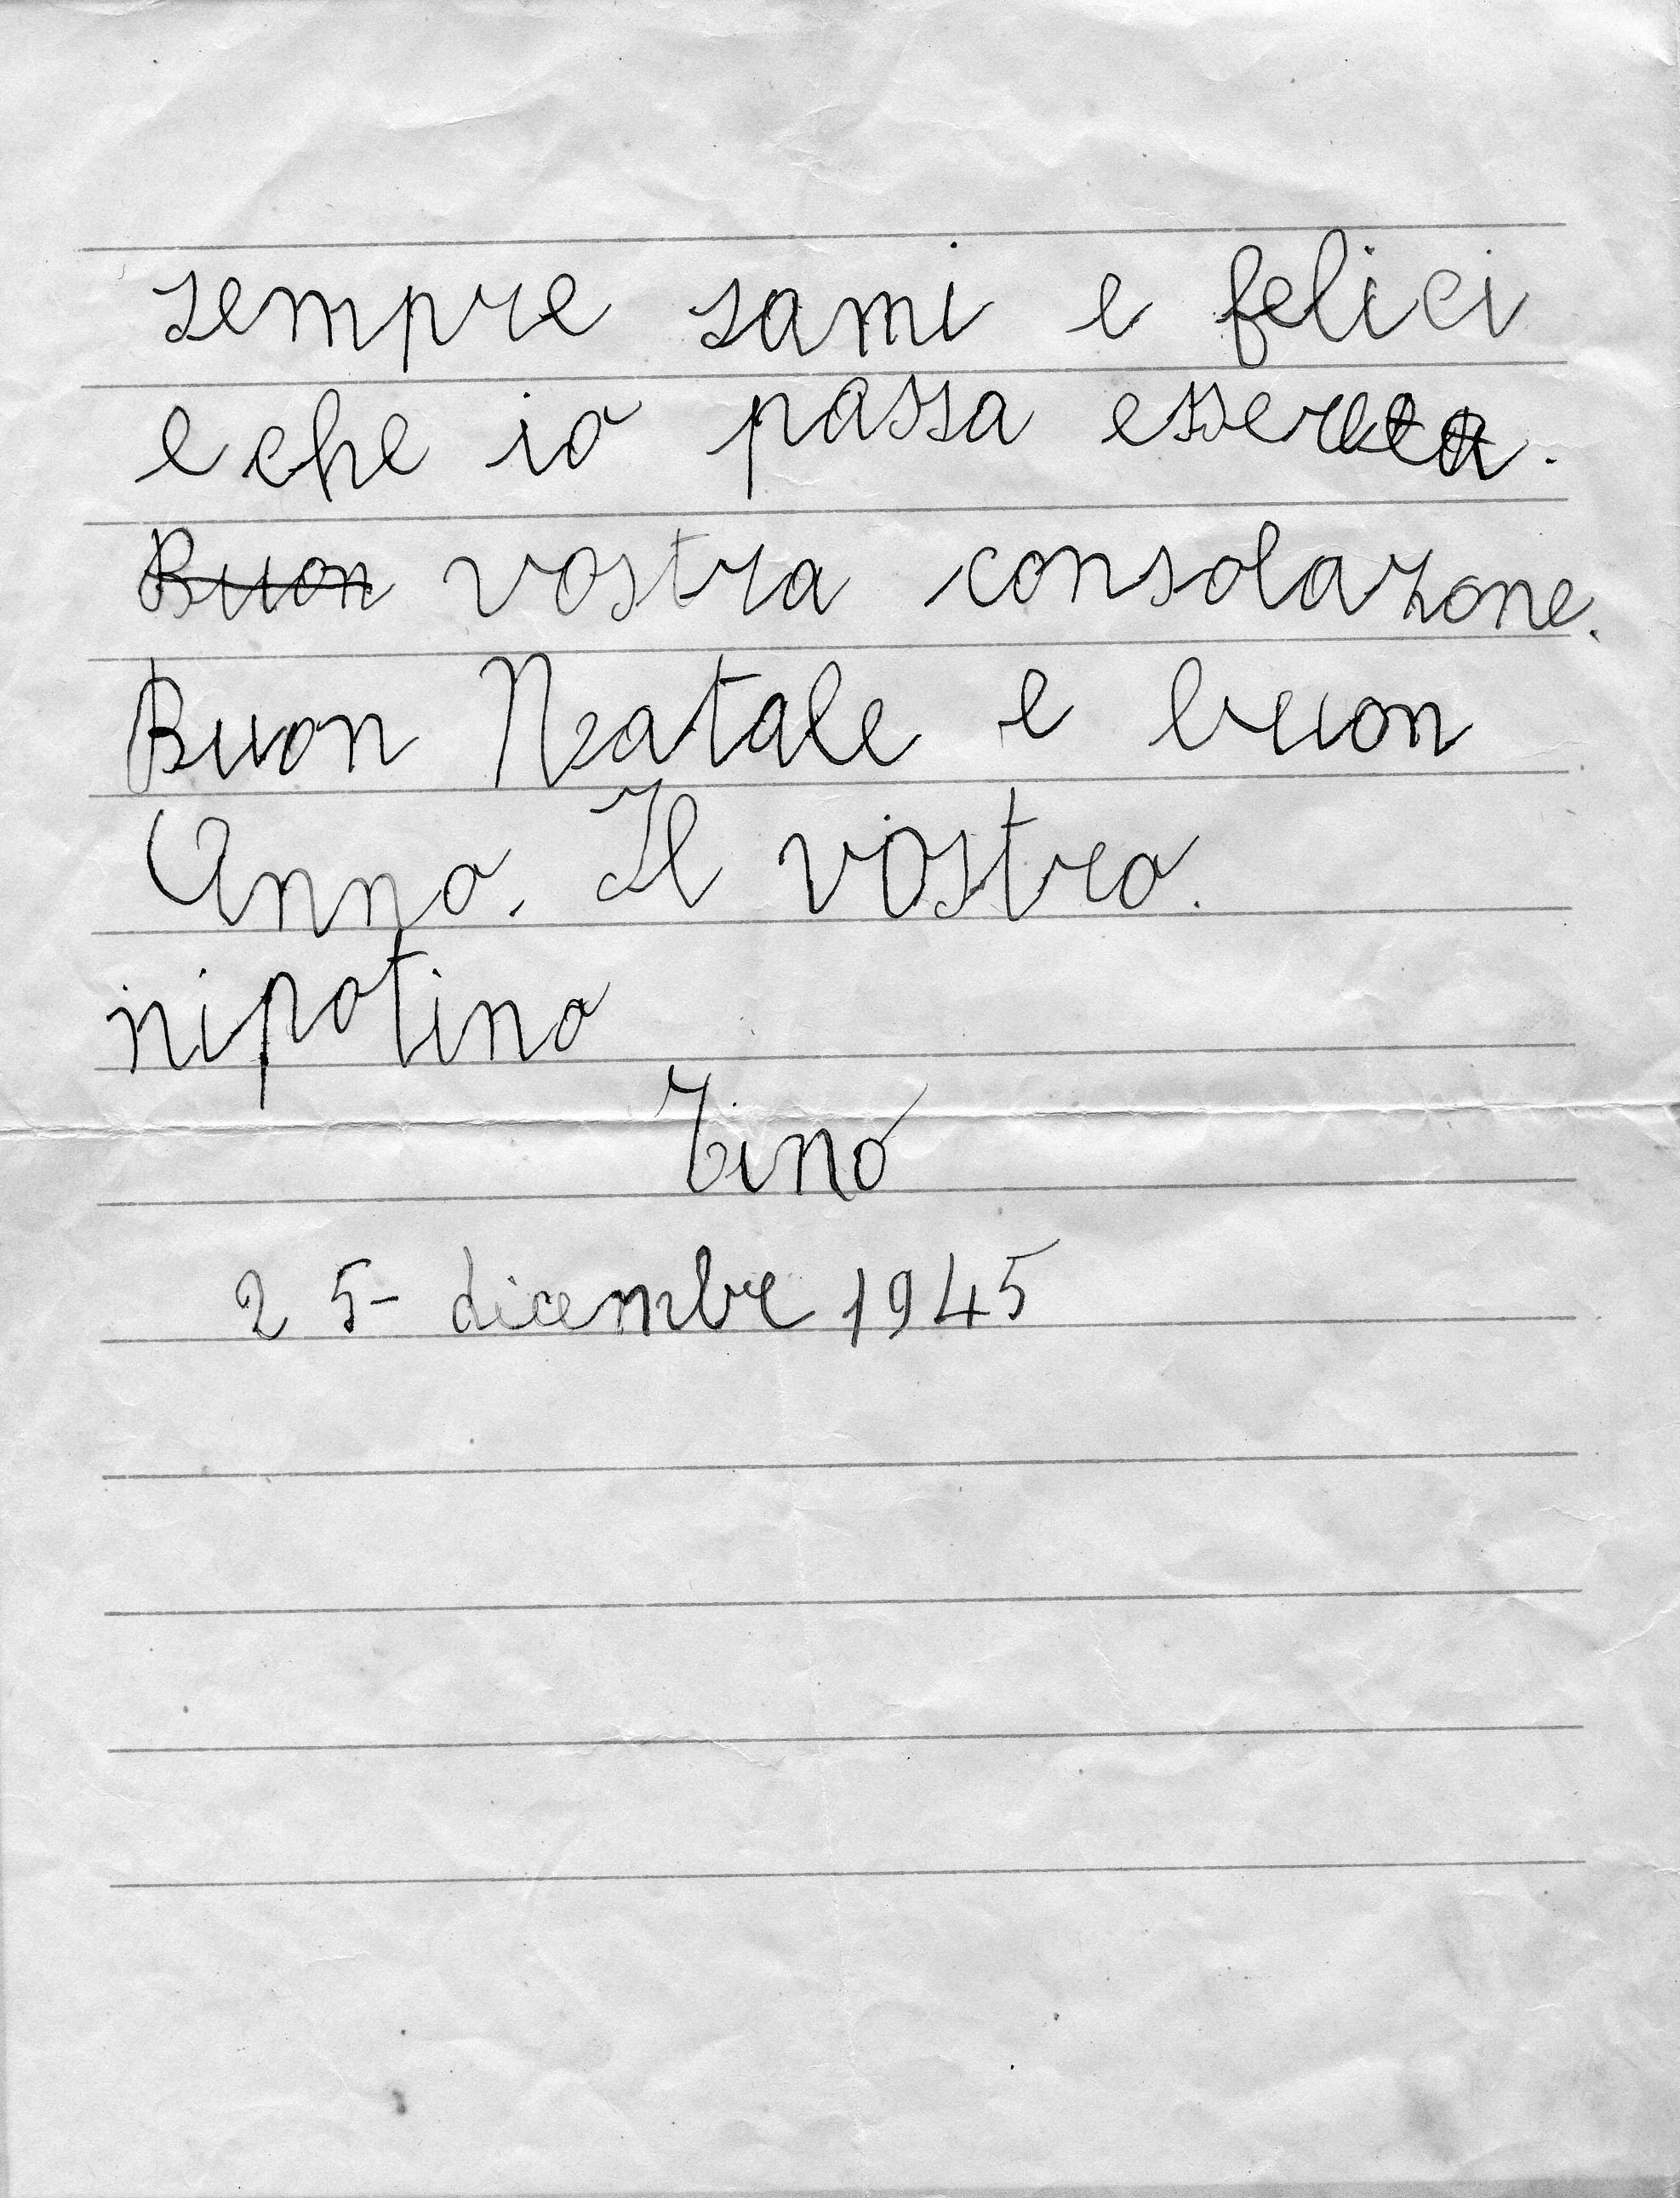 sempre sani e felici
e che io possa essere la.
Buon vostra consolazone.
Buon Natale e buon
Anno. Il vostro.
nipotino
Tino
25- dicembre 1945